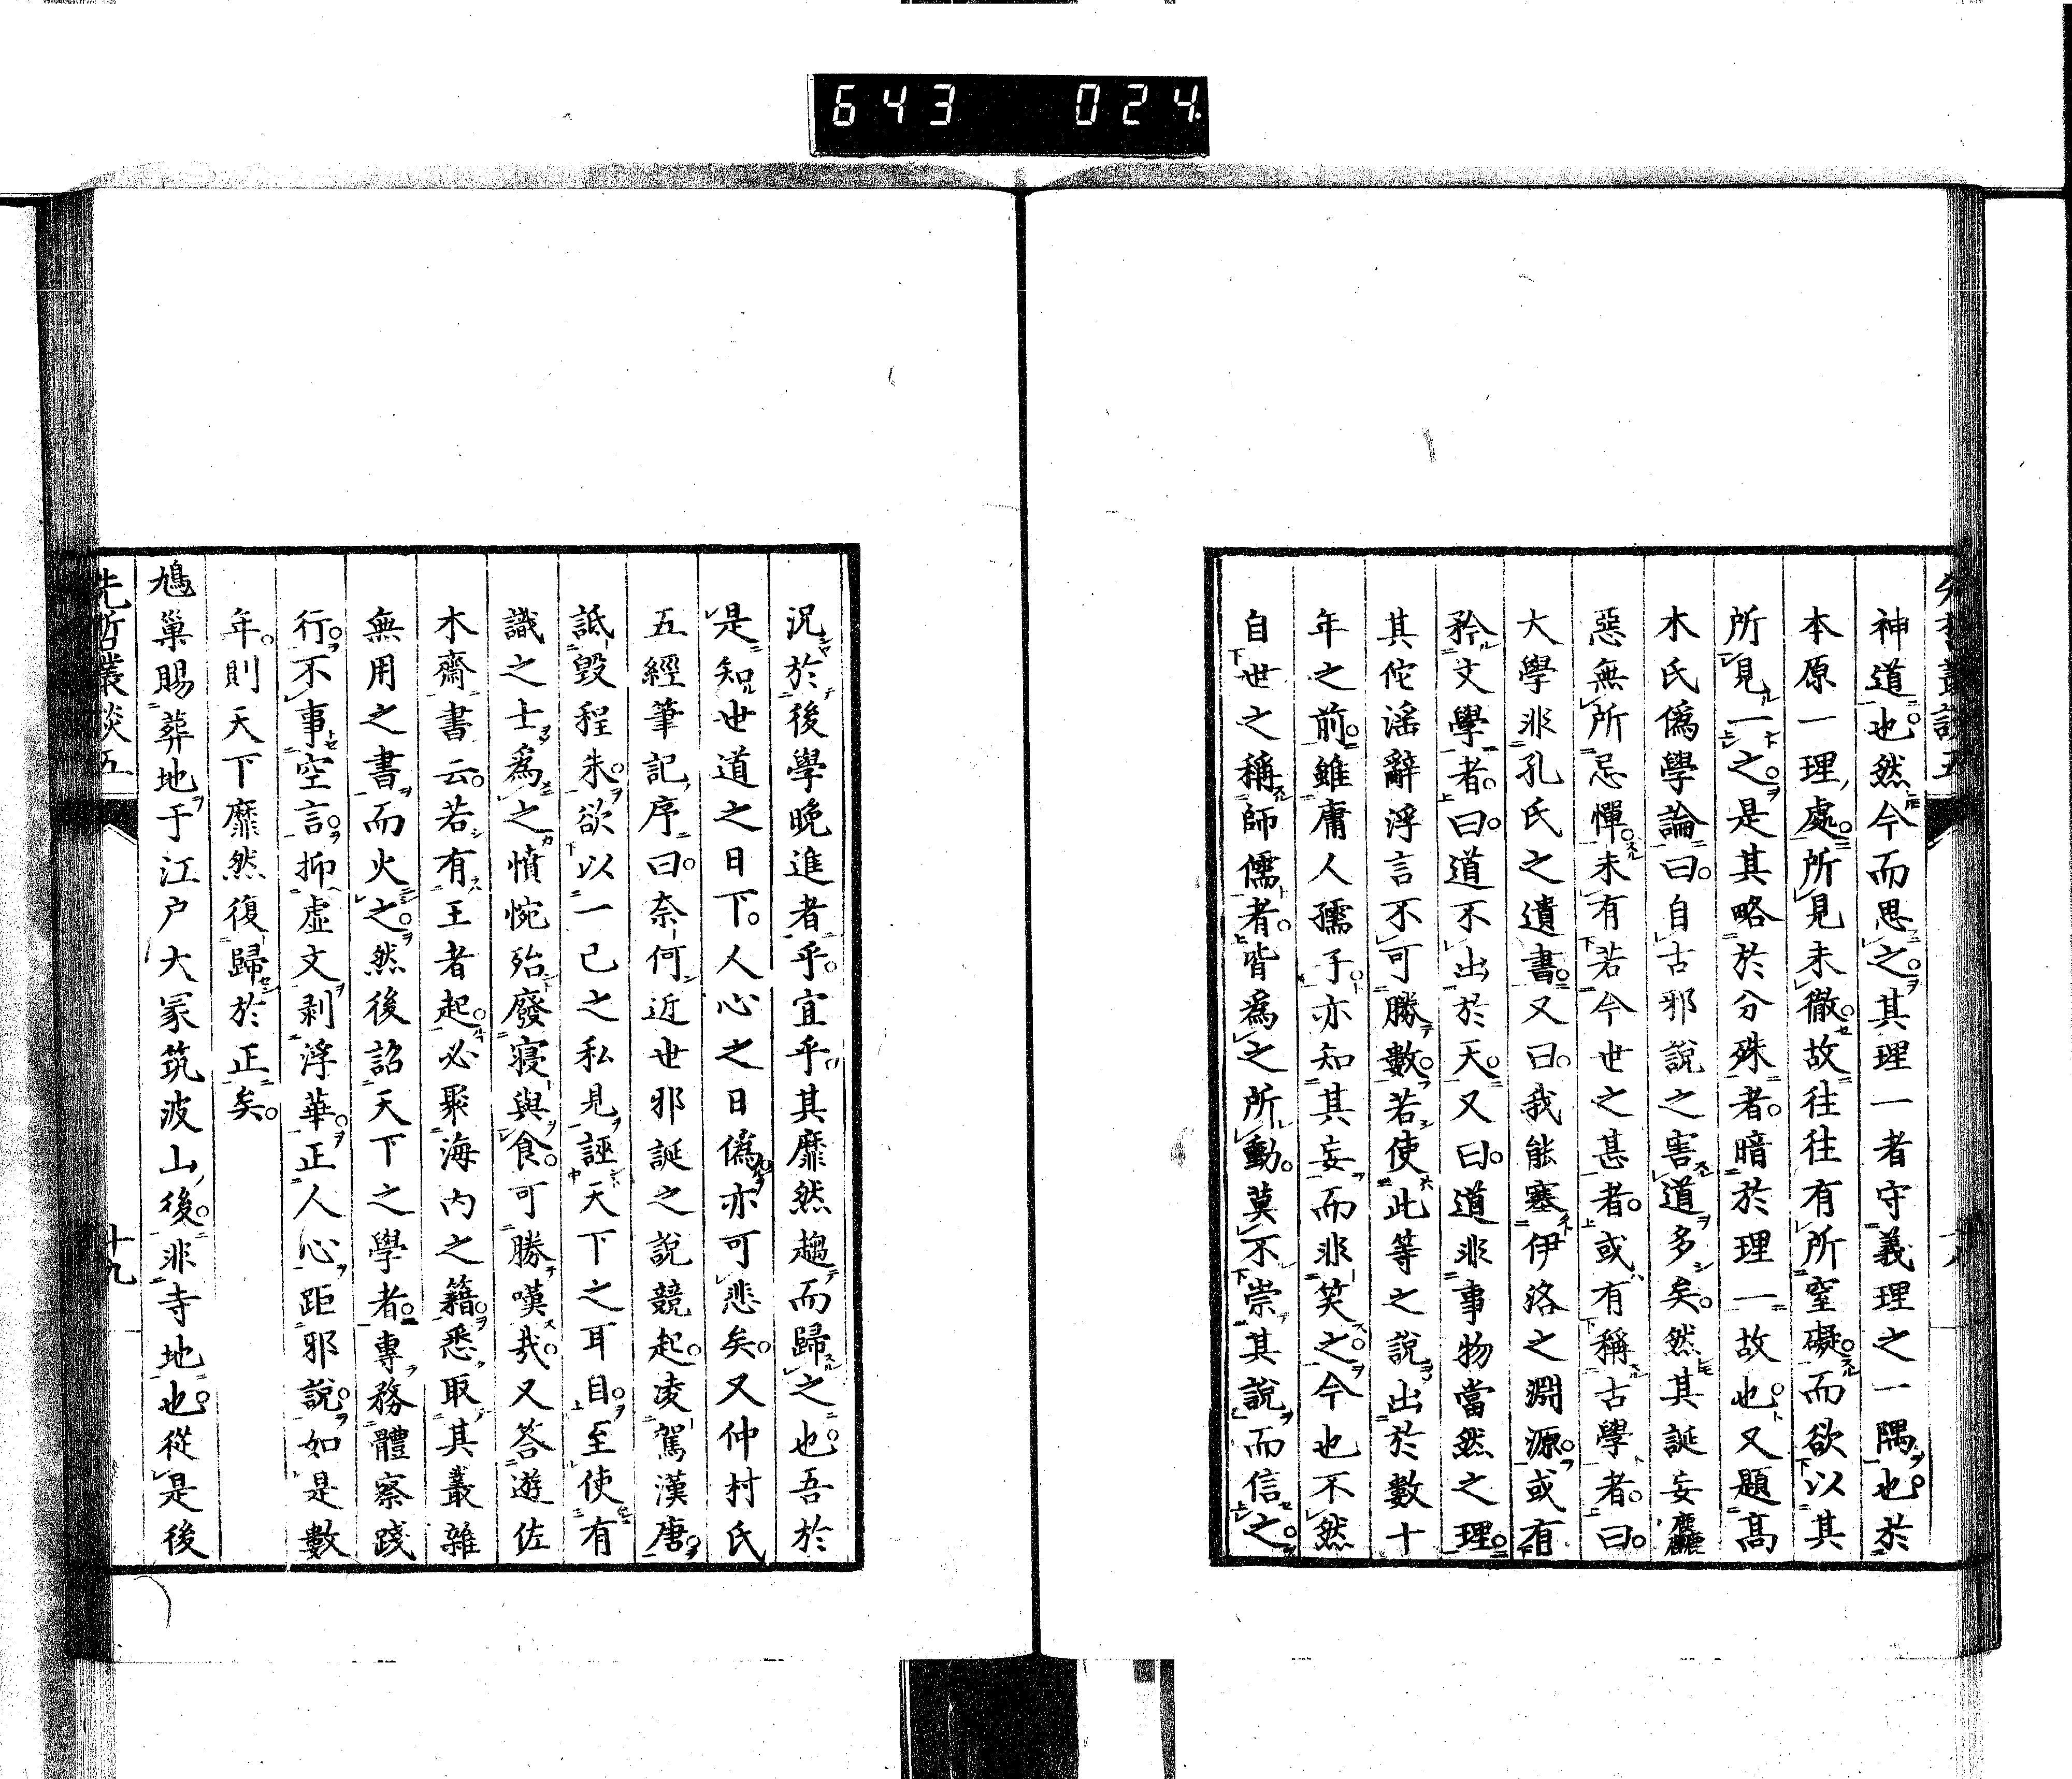 643 024
神道也然今而思之其理一者守義理之一隅也於
本原一理處所見未徹故往往有所窒礙而欲以其
所見一之是其略於分殊者暗於理一故也又題高
木氏僞學論曰自古邪說之害道多矣然其誕妄麤
惡無所忌憚未有若今世之甚者或有稱古學者曰
大學非孔氏之遺書又曰我能塞伊洛之淵源或有
矜文學者曰道不出於天又曰道非事物當然之理
其佗滛辭浮言不可勝數若使此等之說出於數十
年之前雖庸人孺子亦知其妄而非笑之今也不然
自世之稱師儒者皆爲之所動莫不崇其說而信之
十八
況於後學晚進者乎宜乎其靡然趨而歸之也吾於
是知世道之日下人心之日僞亦可悲矣又仲村氏
五經筆記序曰奈何近世邪誕之說競起凌駕漢唐
詆毀程朱欲以一己之私見誣天下之耳目至使有
識之士爲之憤惋殆廢寢與食可勝嘆哉又答遊佐
木齋書云若有王者起必聚海內之籍悉取其叢雜
無用之書而火之然後詔天下之學者專務體察踐
行不事空言抑虛文剥浮華正人心距邪說如是數
年則天下靡然復歸於正矣
鳩巢賜葬地于江戶大冢筑波山後非寺地也從是後
先哲叢談五
十九